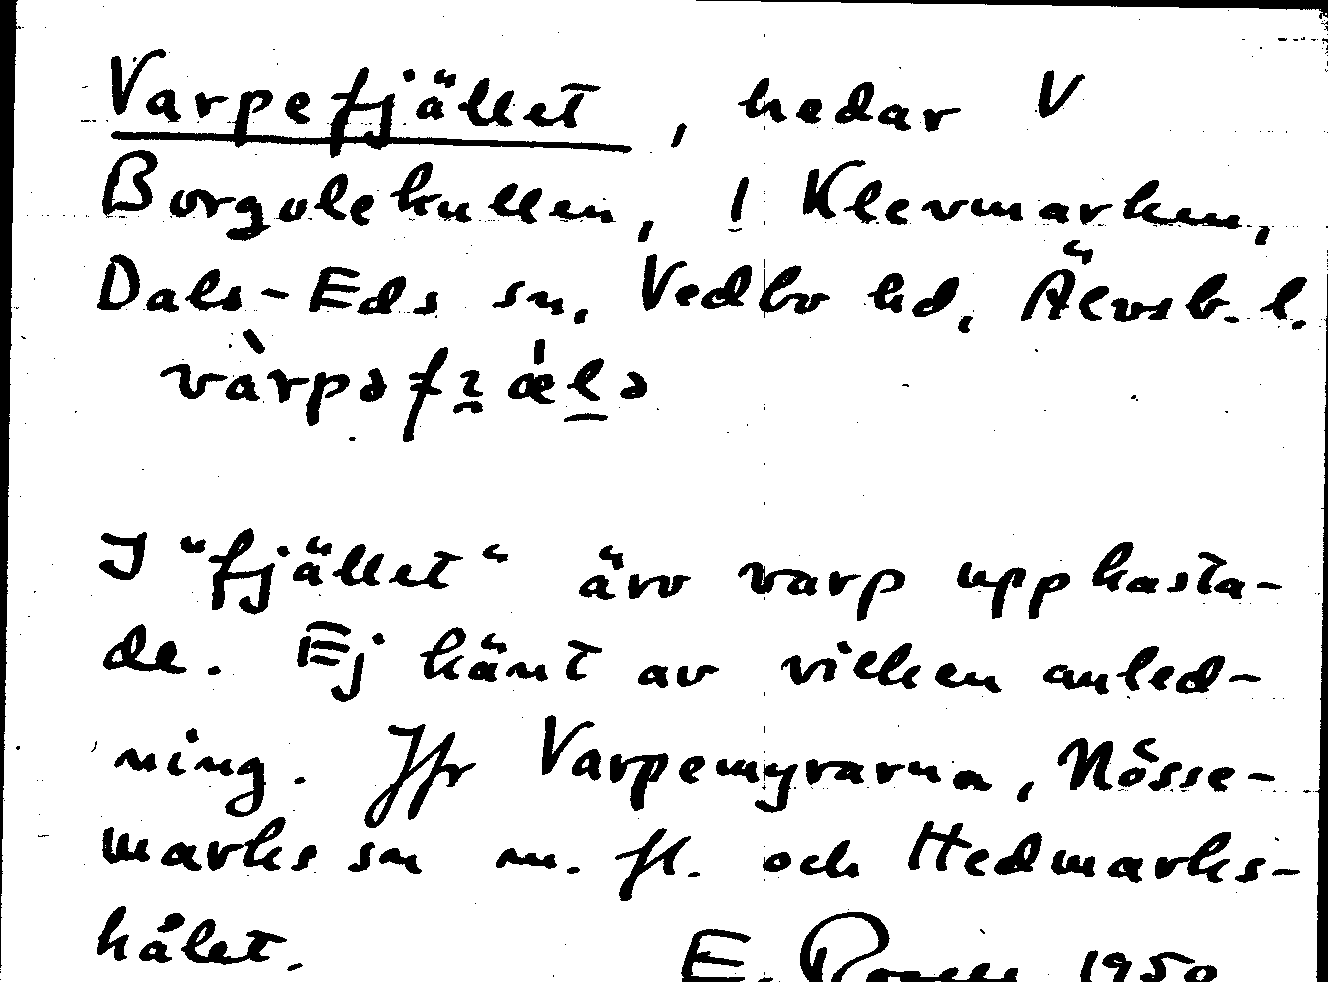 Varpefjället, hedar V
Borgolekullen, i Klevmarken,
Dals-Eds sn, Vedbo hd, Älvsb. l.
vàrpəfʒæ̍lə
I "fjället" äro varp uppkasta-
de. Ej känt av vilken anled-
ning. Jfr Varpemyrarna, Nösse-
marks sn m. fl. och Hedmarks-
hålet.
E. 1950